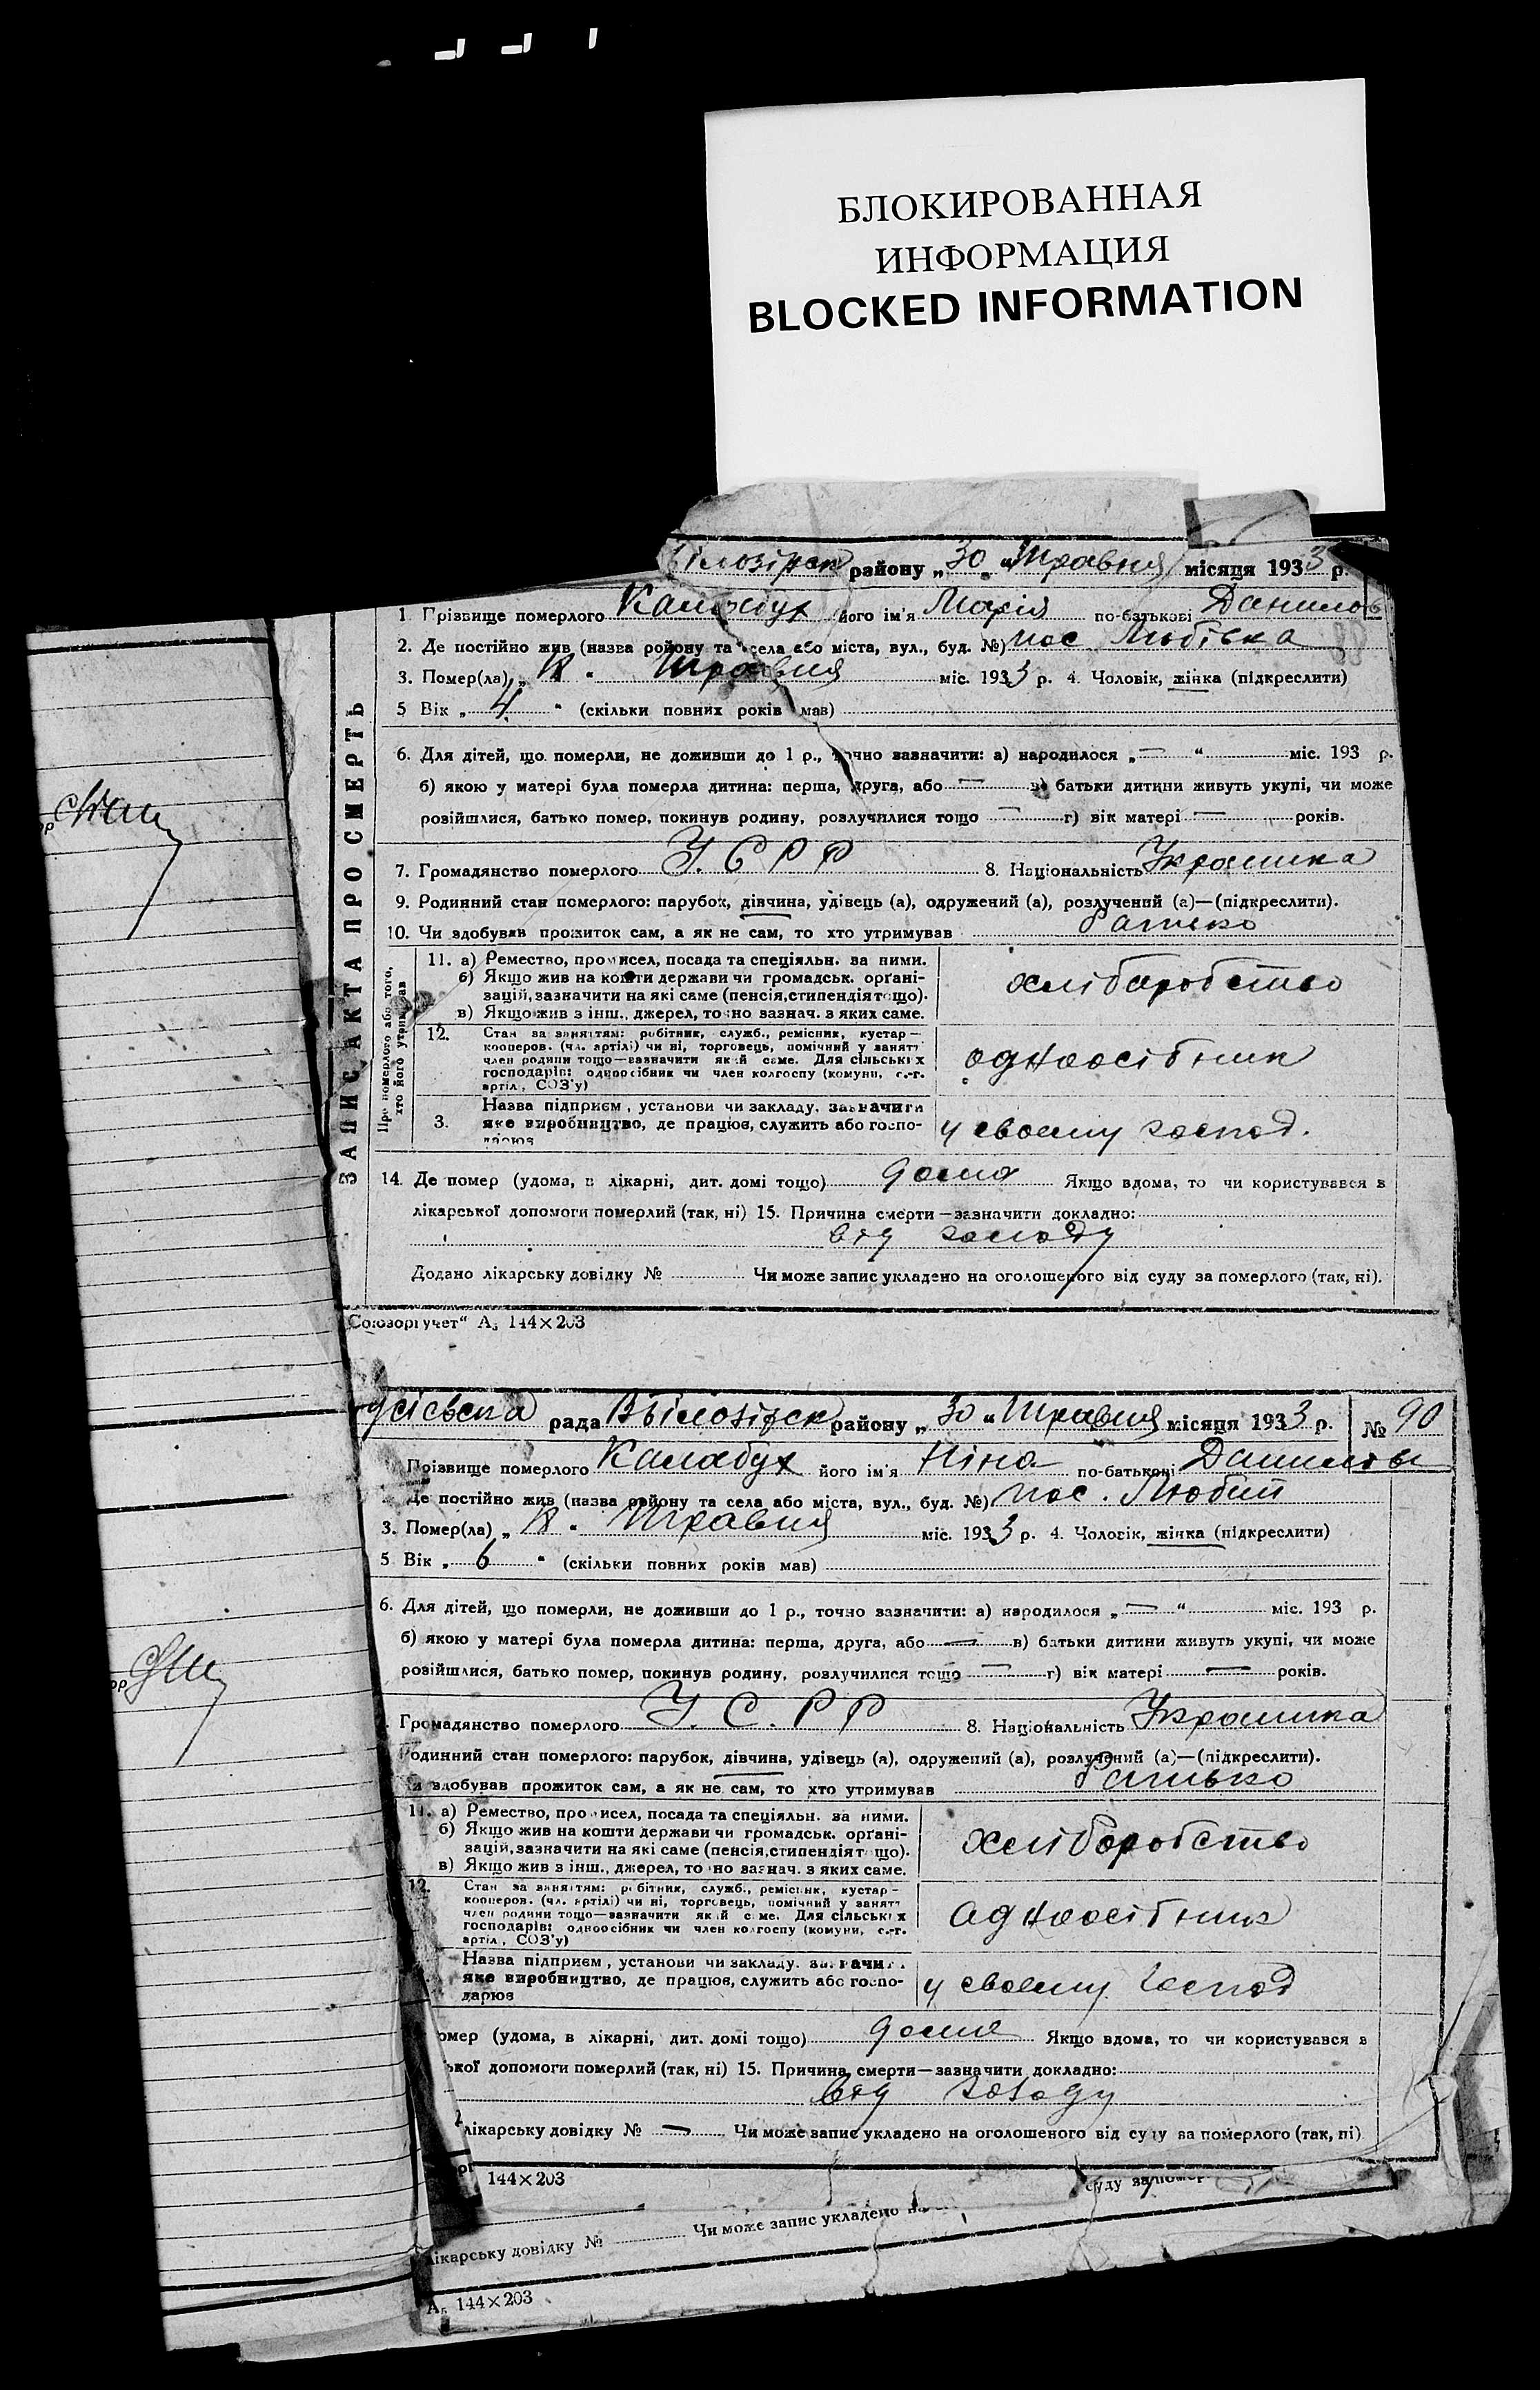 БЛОКИРОВАННАЯ
ИНФОРМАЦИЯ
BLOCKED INFORMATION
Білозірск району „30“ Травня місяця 1933 р.
1. Прізвище померлого Калабух його ім'я Марія по-батькові Данилов
2. Де постійно жив (назва району та села або міста, вул., буд. №) пос Любівка
88
3. Помер(ла) „ “ Травня міс. 1933 р. 4. Чоловік, жінка (підкреслити)
5 Вік „ 4 “ (скільки повних років мав)
6. Для дітей, що померли, не доживши до 1 р., точно зазначити: а) народилося „ — “ міс. 193 р.
б) якою у матері була померла дитина: перша, друга, або — в) батьки дитини живуть укупі, чи може
розійшлися, батько помер, покинув родину, розлучилися тощо — г) вік матері — років.
7. Громадянство померлого У. С Р Р 8. Національність Українка
9. Родинний стан померлого: парубок, дівчина, удівець (а), одружений (а), розлучений (а)—(підкреслити).
10. Чи здобував прожиток сам, а як не сам, то хто утримував Батько
ЗАПИС АКТА ПРО СМЕРТЬ
Про померлого або того,
хто його утримував
11. а) Ремество, промисел, посада та спеціяльн. за ними.
б) Якщо жив на кошти держави чи громадськ. орґані-
зацій, зазначити на які саме (пенсія, стипендія тощо).
в) Якщо жив з інш., джерел, точно зазнач. з яких саме.
хліборобство
12. Стан за заняттям: робітник, служб., ремісник, кустар—
кооперов. (чл. артілі) чи ні, торговець, помічний у занятт
член родини тощо—зазначити який саме. Для сільських
господарів: одноосібник чи член колгоспу (комуни, с.-г.
артіл, СОЗ'у)
одноосібник
3. Назва підприєм, установи чи закладу, зазначити
яке виробництво, де працює, служить або госпо-
дарює
у своєму господ.
14. Де помер (удома, в лікарні, дит. домі тощо) дома Якщо вдома, то чи користувався з
лікарської допомоги померлий (так, ні) 15. Причина смерти—зазначити докладно:
від голоду
Додано лікарську довідку № Чи може запис укладено на оголошеного від суду за померлого (так, ні).
Союзоргучет“ А₅ 144×203
рада Білозірск району „30“ Травня місяця 1933 р. № 90
Прізвище померлого Калабух його ім'я Ніна по-батькові Данилов
Де постійно жив (назва району та села або міста, вул., буд. №) пос.
3. Помер(ла) „ “ Травня міс. 1933 р. 4. Чоловік, жінка (підкреслити)
5 Вік „ 6 “ (скільки повних років мав)
6. Для дітей, що померли, не доживши до 1 р., точно зазначити: а) народилося „ — “ міс. 193 р.
б) якою у матері була померла дитина: перша, друга, або — в) батьки дитини живуть укупі, чи може
розійшлися, батько помер, покинув родину, розлучилися тощо — г) вік матері — років.
Громадянство померлого У. С. Р Р 8. Національність Українка
Родинний стан померлого: парубок, дівчина, удівець (а), одружений (а), розлучений (а)—(підкреслити).
Чи здобував прожиток сам, а як не сам, то хто утримував Батько
11. а) Ремество, промисел, посада та спеціяльн. за ними.
б) Якщо жив на кошти держави чи громадськ. орґані-
зацій, зазначити на які саме (пенсія, стипендія тощо).
в) Якщо жив з інш., джерел, точно зазнач. з яких саме.
хліборобство
12. Стан за заняттям: робітник, служб., ремісник, кустар—
кооперов. (чл. артілі) чи ні, торговець, помічний у занятт
член родини тощо—зазначити який саме. Для сільських
господарів: одноосібник чи член колгоспу (комуни, с.-г.
артіл, СОЗ'у)
одноосібник
Назва підприєм, установи чи закладу, зазначи
яке виробництво, де працює, служить або госпо-
дарює
у своєму господ
омер (удома, в лікарні, дит. домі тощо) дома Якщо вдома, то чи користувався з
ької допомоги померлий (так, ні) 15. Причина смерти—зазначити докладно:
від голоду
лікарську довідку № — Чи може запис укладено на оголошеного від суду за померлого (так, ні)
144×203
суду за помер
лікарську довідку № Чи може запис укладено на
А₅ 144×203